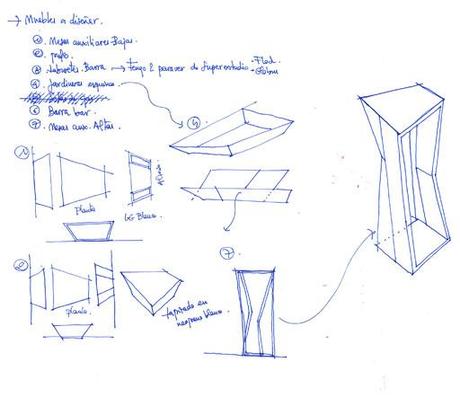 → Muebles a diseñar.
① . Mesas auxiliares Bajas
② . puffs.
③ . taburetes Barra → tengo 2 para ver de Superestudio
④ . Jardineras esquina
⑥ . Barra bar.
⑦ . Mesas aux. Altas.
④
①
planta
Alzado
GG Blanco
②
planta
tapizado en
neopreno blanco
⑦